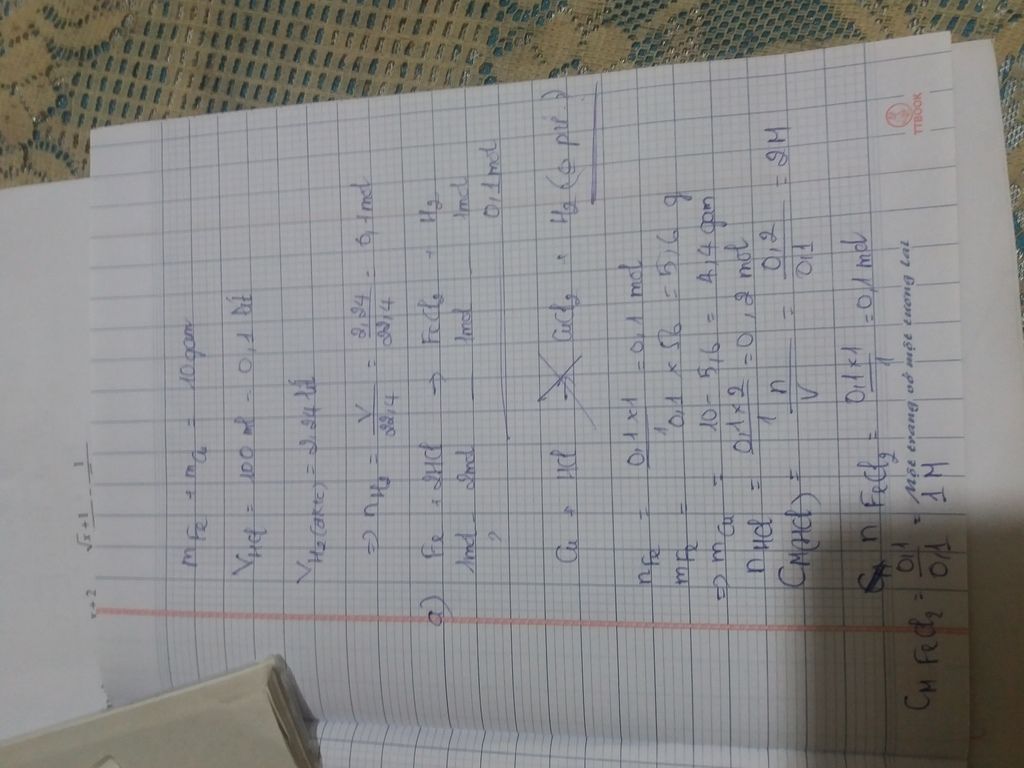 x+2 √x+1 1
mFe + mCu = 10 gam
VHCl = 100 ml = 0,1 lít
VH2(đktc) = 2,24 lít
=> nH2 = V/22,4 = 2,24/22,4 = 0,1 mol
a) Fe + 2HCl → FeCl2 + H2
1mol 2mol 1mol 1mol
? 0,1 mol
Cu + HCl CuCl2 + H2
nFe = 0,1 × 1/1 = 0,1 mol
mFe = 0,1 × 56 = 5,6 g
=> mCu = 10 - 5,6 = 4,4 gam
nHCl = 0,1 × 2/1 = 0,2 mol
CM(HCl) = n/V = 0,2/0,1 = 2M
nFeCl2 = 0,1 × 1/1 = 0,1 mol
CM FeCl2 = 0,1/0,1 = 1 M
Mỗi trang vở một tương lai
TTBOOK